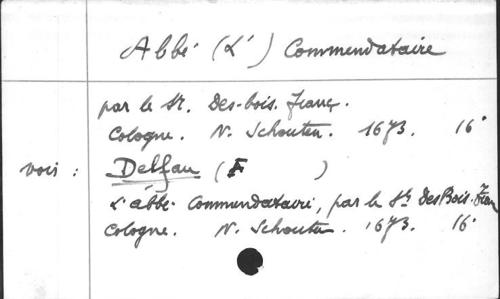 Abbé (L') Commendataire
par le Sr. Des-bois. Franç.
Cologne. N. Schouten. 1673. 16°
voir : Delfau (F )
L'abbé Commendataire, par le Sr Des Bois. Fran
Cologne. N. Schouten. 1673. 16°